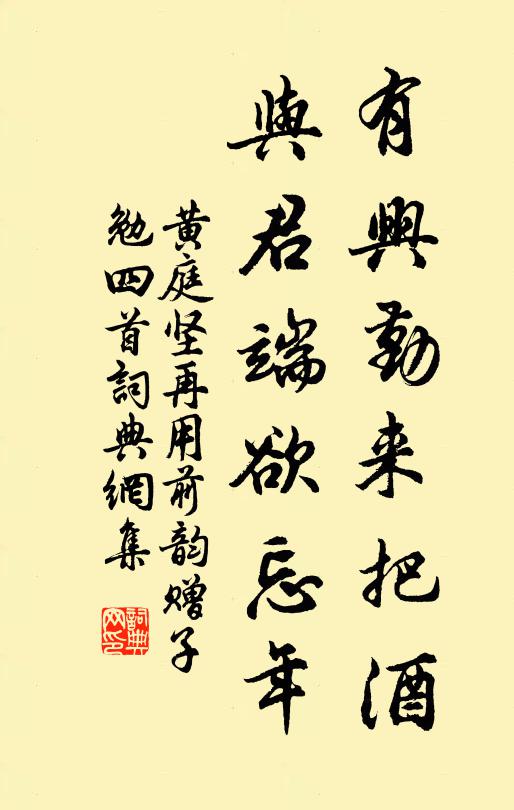 有興勤来把酒
與君端欲忘年
黄庭坚再用前韵赠子
勉四首詞典網集
詞典
网印